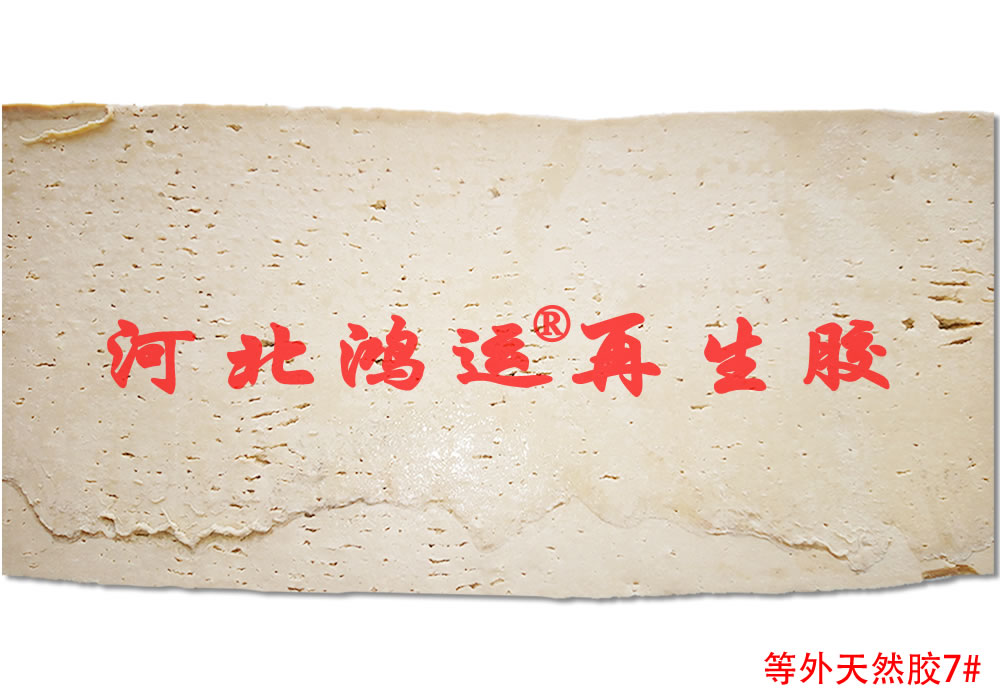 河北鸿运®再生胶
等外天然胶7#